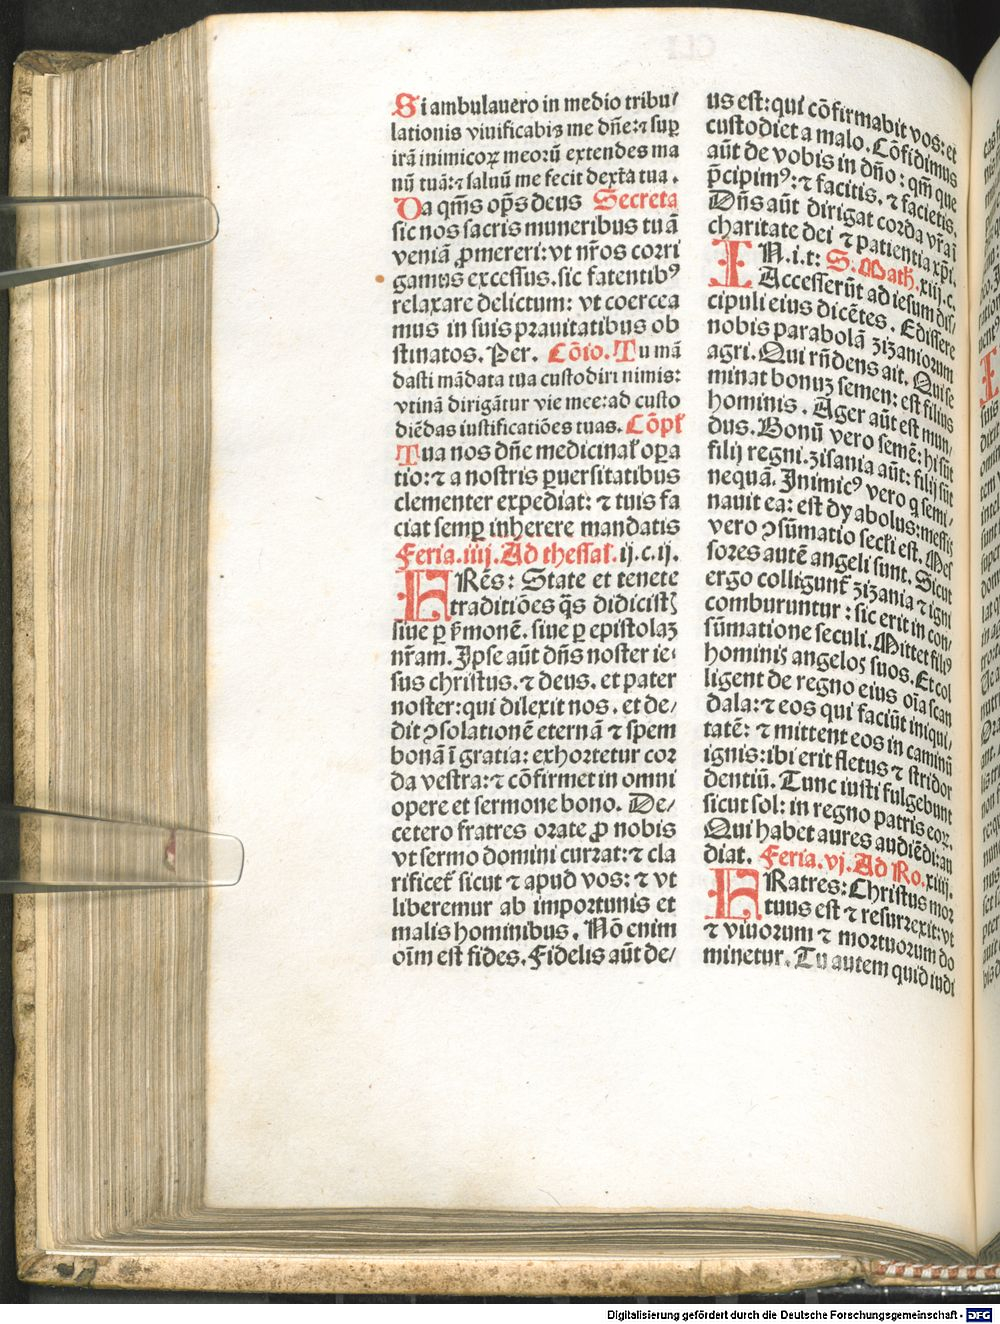 Si ambulauero in medio tribu/
lationis viuificabis me dñe: ⁊ sup̲
irā inimicoꝝ meorū extendes ma
nū tuā: ⁊ saluū me fecit dext̄a tua.
Da qm̄s op̄s deus Secreta
sic nos sacris muneribus tuā
veniā ꝓmereri: vt nr̄os corri
gamus excessus. sic fatentibꝰ
relaxare delictum: vt coercea
mus in suis prauitatibus ob
stinatos. Per. Cōio. Tu mā
dasti mādata tua custodiri nimis:
vtinā dirigātur vie mee: ad custo
diēdas iustificatiōes tuas. Cōpł
Tua nos dñe medicinał oꝑa
tio: ⁊ a nostris ꝑuersitatibus
clementer expediat: ⁊ tuis fa
ciat semꝑ inherere mandatis
Feria. iiij. Ad thessał. ij. c. ij.
FRēs: State et tenete
traditiōes q̄s didicistꝭ
siue ꝑ ẜmonē. siue ꝑ epistolaꝫ
nr̄am. Ipse aūt dñs noster ie/
sus christus. ⁊ deus. et pater
noster: qui dilexit nos. et de/
dit ꝯsolationē eternā ⁊ spem
bonā ī gratia: exhortetur cor
da vestra: ⁊ cōfirmet in omni
opere et sermone bono. De/
cetero fratres orate ꝓ nobis
vt sermo domini currat: ⁊ cla
rificet̄ sicut ⁊ apud vos: ⁊ vt
liberemur ab importunis et
malis hominibus. Nō enim
oīm est fides. Fidelis aūt de/
us est: qui cōfirmabit vos: et
custodiet a malo. Cōfidimus
aūt de vobis in dño: qm̄ que
p̄cipimꝰ: ⁊ facitis. ⁊ facietis.
Dñs aūt dirigat corda vr̄a ī
charitate dei ⁊ patientia xp̄i.
IN. i. t: S. Math. xiij. c.
Accesserūt ad iesum dis/
cipuli eius dicētes. Edissere
nobis parabolā zizaniorum
agri. Qui rn̄dens ait. Qui se
minat bonuꝫ semen: est filius
hominis. Ager aūt est mun/
dus. Bonū vero semē: hi sūt
filij regni. zisania aūt: filij sūt
nequā. Inimicꝰ vero q̄ semi/
nauit ea: est dyabolus: messis
vero ꝯsūmatio secłi est. Mes
sores autē angeli sunt. Sicut
ergo colligunt̄ zizania ⁊ igni
comburuntur: sic erit in con/
sūmatione seculi. Mittet filiꝰ
hominis angelos suos. Et col
ligent de regno eius oīa scan
dala: ⁊ eos qui faciūt iniqui/
tatē: ⁊ mittent eos in caminū
ignis: ibi erit fletus ⁊ stridor
dentiū. Tunc iusti fulgebunt
sicut sol: in regno patris eoꝝ.
Qui habet aures audiēdi: au
diat. Feria. vj. Ad Ro. xiiij.
FRatres: Christus mor
tuus est ⁊ resurrexit: vt
⁊ viuorum ⁊ mortuorum do
minetur. Tu autem quid iudi
Digitalisierung gefördert durch die Deutsche Forschungsgemeinschaft - DFG